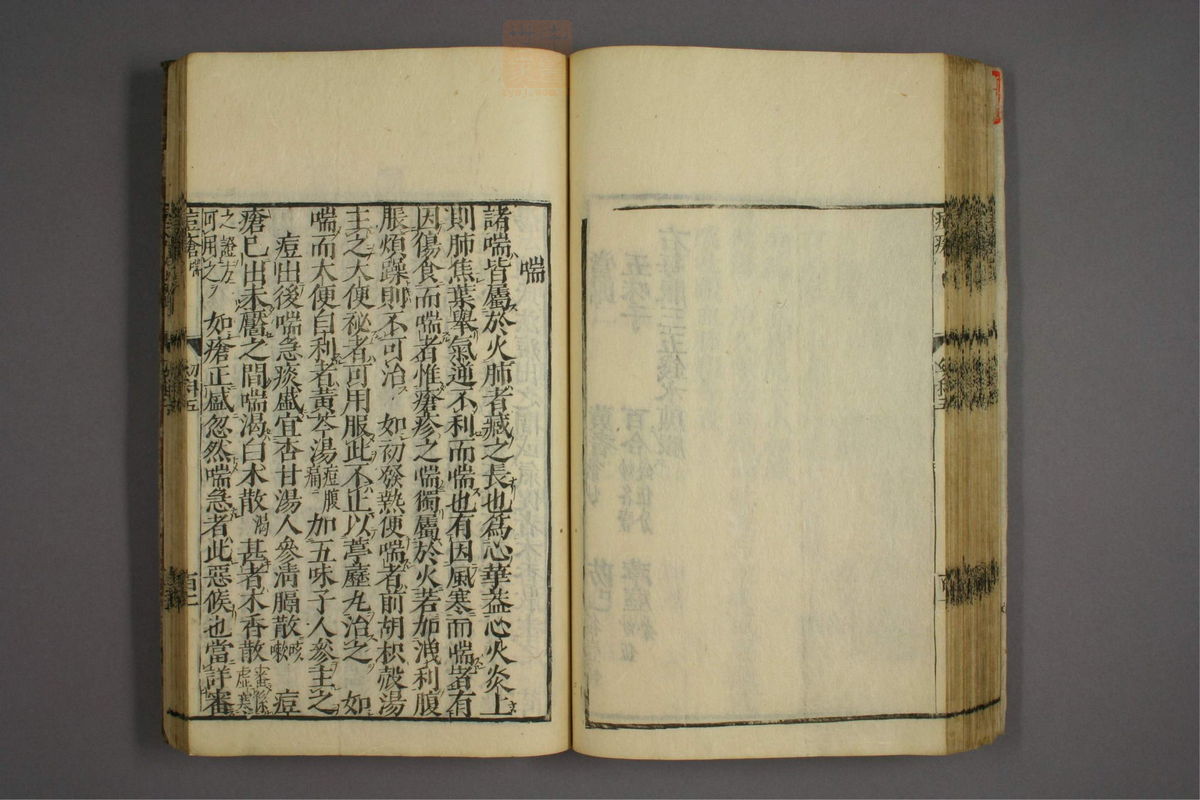 喘
諸喘皆屬於火肺者藏之長也爲心華蓋心火炎上
則肺焦葉舉氣逆不利而喘也有因風寒而喘者有
因傷食而喘者惟瘡疹之喘獨屬於火若加洩利腹
脹煩躁則不可治 如初發熱便喘者前胡枳殼湯
主之大便祕者可用服此不止以葶藶丸治之 如
喘而大便自利者黃芩湯痘腹痛加五味子人參主之
痘出後喘急痰盛宜杏甘湯人參清膈散咳嗽 痘
瘡已出未靨之間喘渴白朮散渴 甚者木香散審係虛寒
之證方可用之 如瘡正盛忽然喘急者此惡候也當詳審